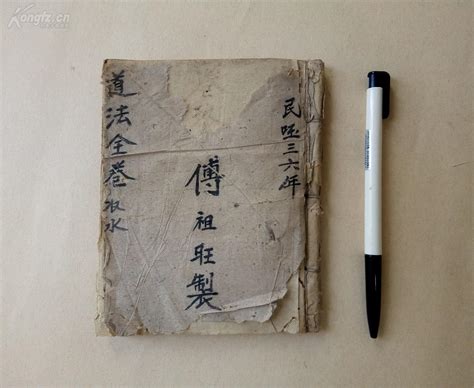 Kongfz.cn
民国三六年
傅祖旺製
道法全卷収水